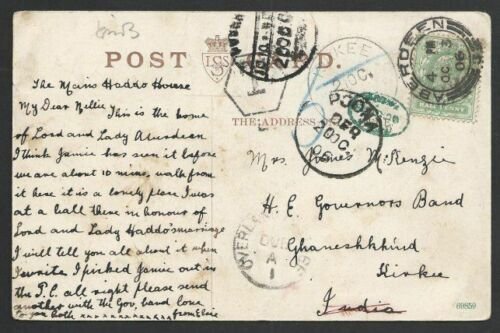 POST CARD.
THE ADDRESS
ABERDEEN
4 PM
OC 3
06
HALFPENNY
KIRKEE
OC.
POONA
DEP.
20 OC.
06
The Mains Haddo House
My Dear Nellie This is the home
of Lord and Lady Aberdeen
I think Jamie has seen it before
we are about 10 mins. walk from
it here it is a lonely place I was
at a ball there in honour of
Lord and Lady Haddo's marriage
I will tell you all about it when
I write I picked Jamie out in
the P.C. all right please send
another with the Gov. band love
to you both xxxxxxxxxxx from Elsie
Mrs James McKenzie
H. E. Governors Band
Ghaneshkhind
Kirkee
India
OVERL
A
1
69859